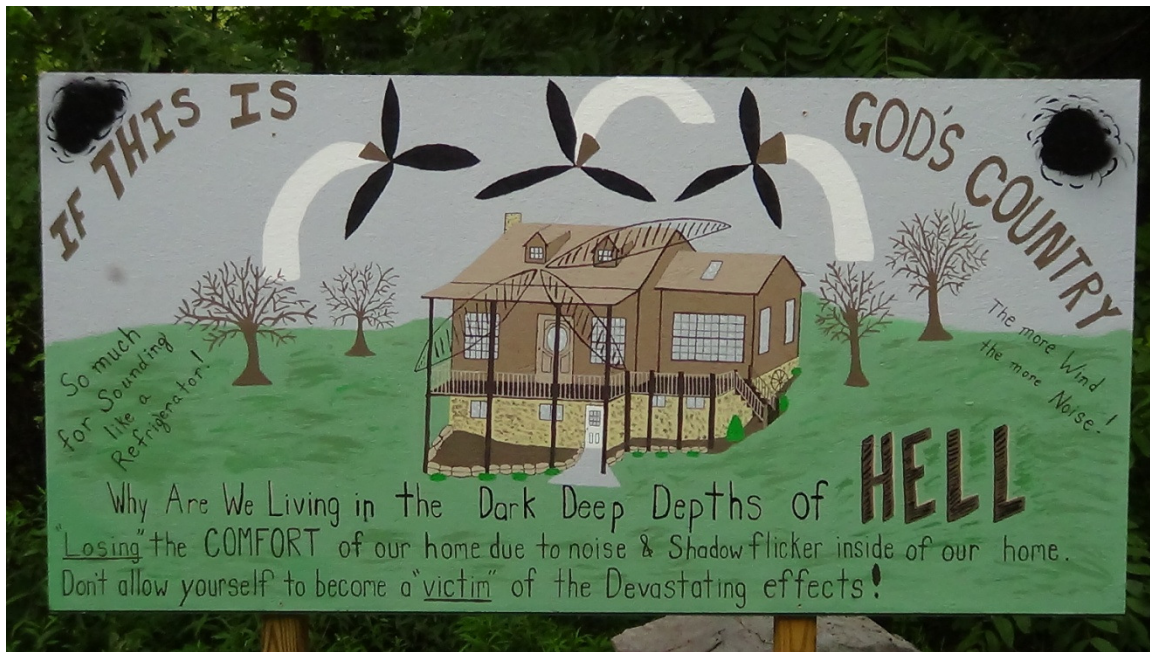 IF THIS IS GOD'S COUNTRY
So much
for Sounding
like a
Refrigerator!
The more Wind
the more Noise!
Why Are We Living in the Dark Deep Depths of HELL
"Losing" the COMFORT of our home due to noise & Shadow flicker inside of our home.
Don't allow yourself to become a "victim" of the Devastating effects!